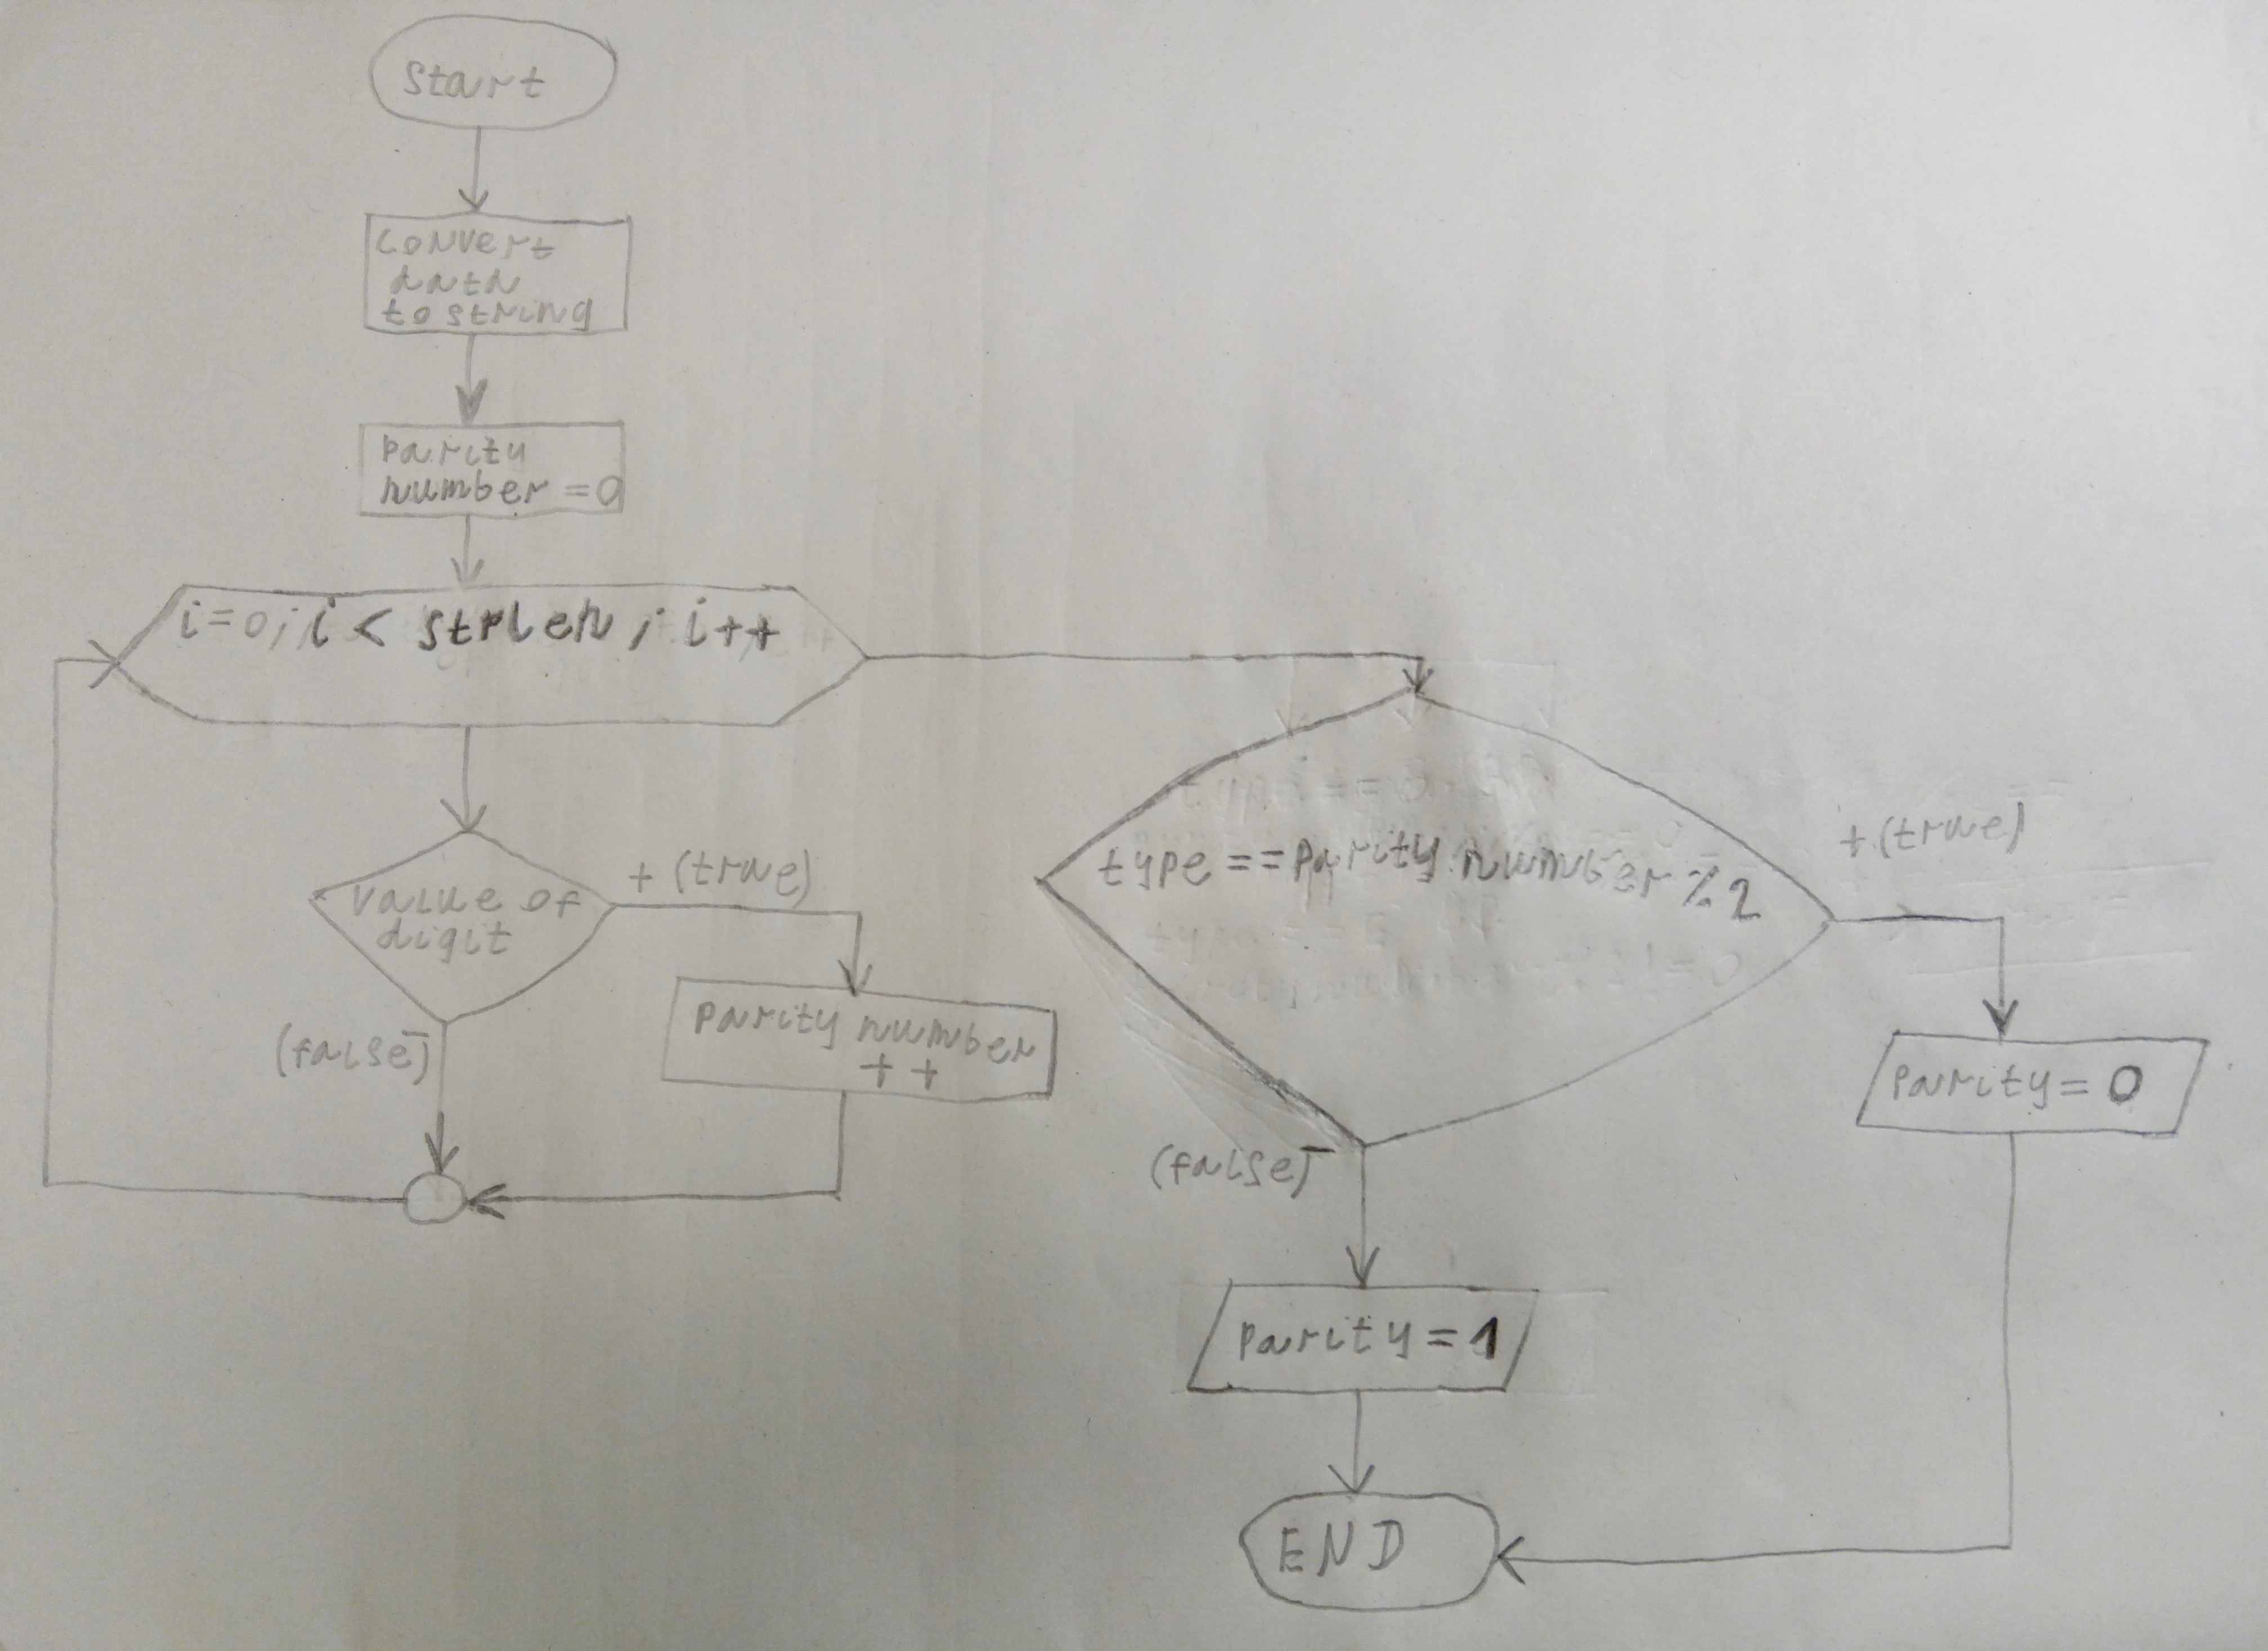 Start
Convert
data
to string
Parity
number = 0
i=0; i < strlen ; i++
value of
digit
+ (true)
(false) -
Parity number
++
type == Parity number % 2
+ (true)
(false) -
Parity = 0
Parity = 1
END